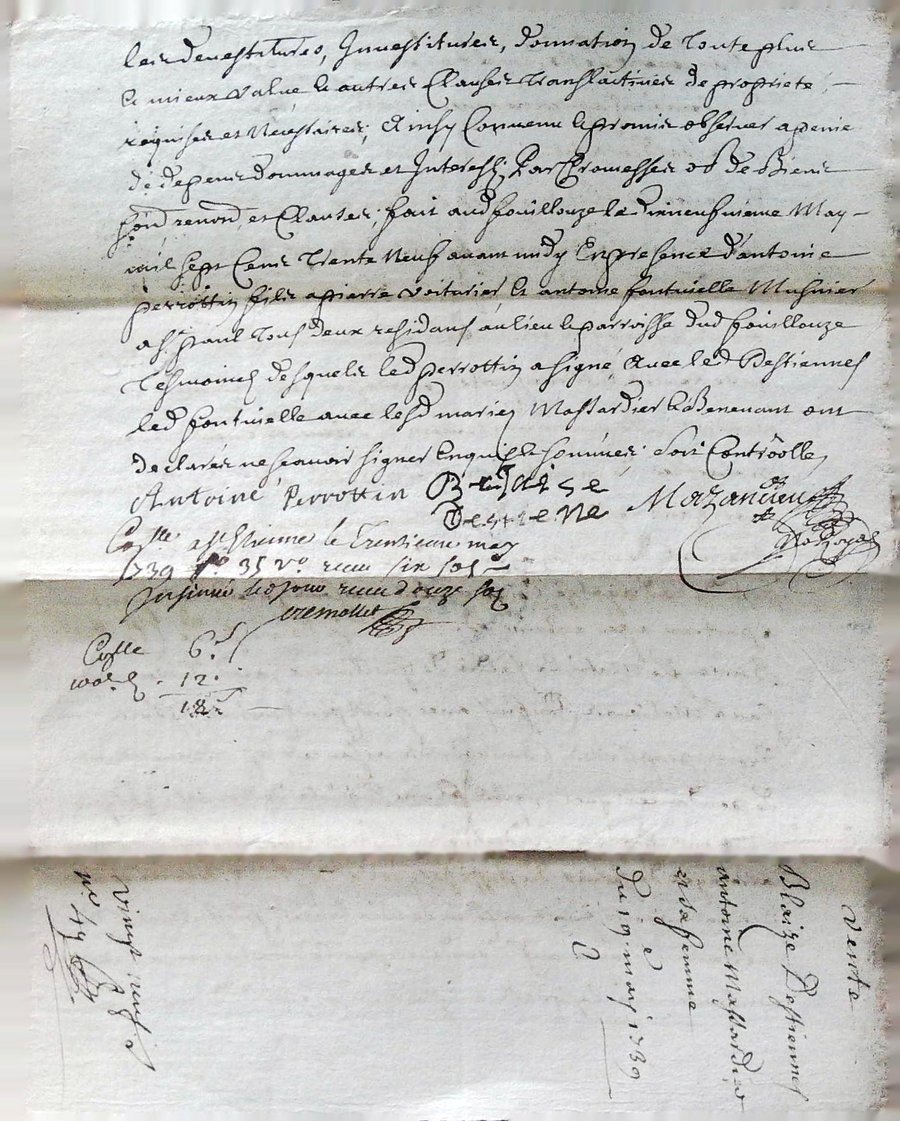 les devestitures, Investitures, donnation de toute plus
& mieux value & autres clauses translatives de proprieté,
requises et Necessaires; Ainsy Convenu & promis observer a peine
de depens dommages et Interests, Par Promesses ob de Biens
renon et Clauses; fait aud fouillouze le dixneufvieme May
mil sept Cens trente Neuf avant midy En presence d'antoine
perrottin fils a pierre voiturier & antoine fontvielle Musnier
a st paul tous deux residans au lieu & parroisse dud fouillouze
tesmoins desquels led perrottin a signé Avec led Destiennes
led fontvielle avec lesd mariez Massardier & Benevant ont
declarés ne scavoir signer Enquis & sommés; Soit Controollé,
Antoine Perrottin Blaise
Destiene Mazancieu
No Royal
Collé a st Etienne le trentieme may
1739 fo 35 vo recu six sols
Insinué led jour recu douze sols
tremollet
Cplle 6s
12
18s
Vente
Blaize Destiennes
antoine Massardier
et sa femme
du 19e may 1739
vingt neuf
no 49